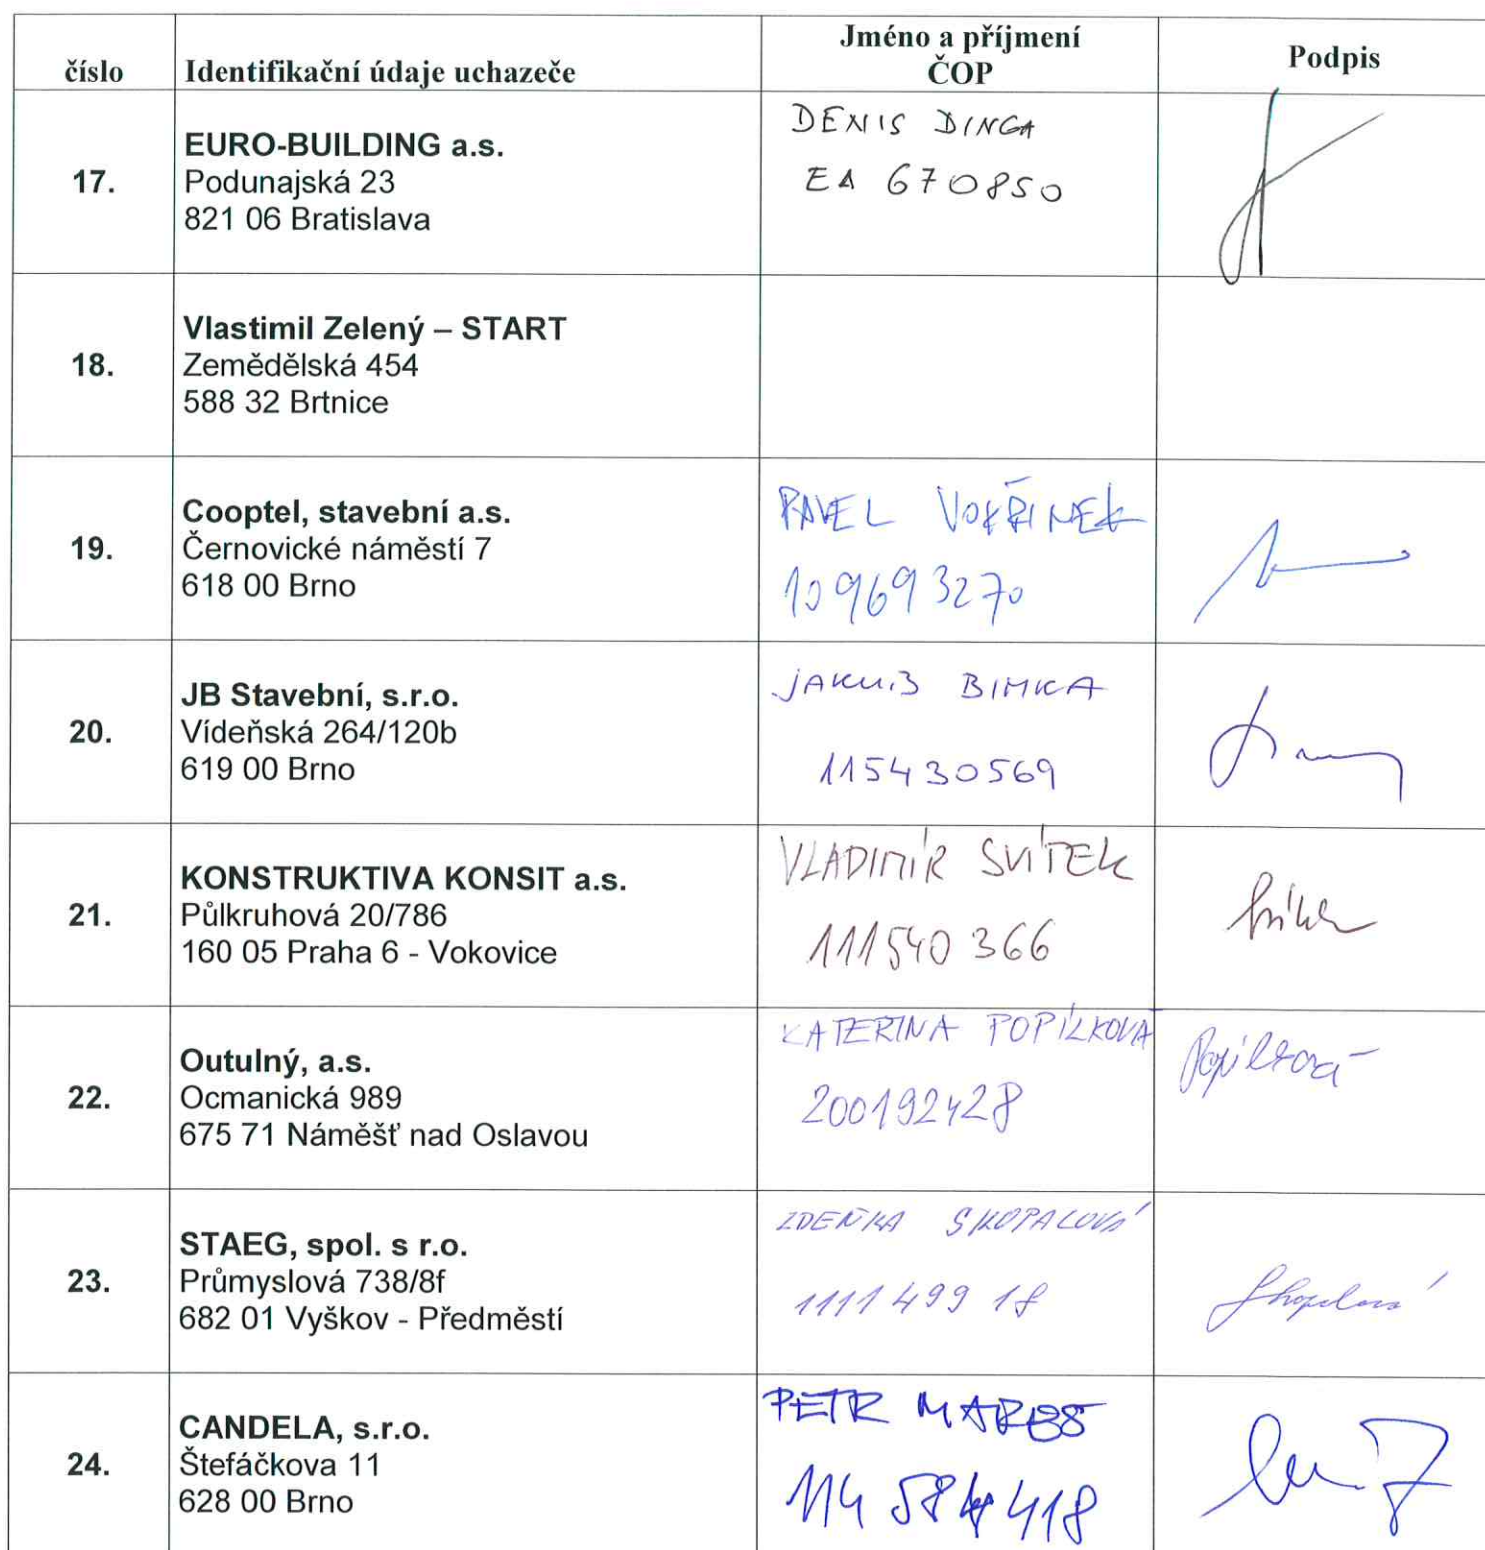 číslo
Identifikační údaje uchazeče
Jméno a příjmení
ČOP
Podpis
17.
EURO-BUILDING a.s.
Podunajská 23
821 06 Bratislava
DENIS DINGA
EA 670850
18.
Vlastimil Zelený – START
Zemědělská 454
588 32 Brtnice
19.
Cooptel, stavební a.s.
Černovické náměstí 7
618 00 Brno
PAVEL VOKŘINEK
109693270
20.
JB Stavební, s.r.o.
Vídeňská 264/120b
619 00 Brno
JAKUB BIMKA
115430569
21.
KONSTRUKTIVA KONSIT a.s.
Půlkruhová 20/786
160 05 Praha 6 - Vokovice
VLADIMÍR SVÍTEK
111540 366
22.
Outulný, a.s.
Ocmanická 989
675 71 Náměšť nad Oslavou
KATERINA POPÍLKOVÁ
200192428
Popílková
23.
STAEG, spol. s r.o.
Průmyslová 738/8f
682 01 Vyškov - Předměstí
ZDEŇKA SKOPALOVÁ
1111499 18
Skopalová
24.
CANDELA, s.r.o.
Štefáčkova 11
628 00 Brno
PETR MAREŠ
114 584 418